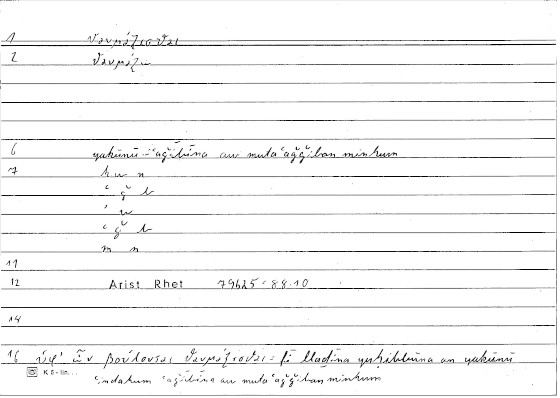 1 θαυμάζεσθαι
2 θαυμάζω
6 yakūnū ʿaǧībīna au mutaʿaǧǧiban minhum
7 k w n
ʿ ǧ b
ʾ w
ʿ ǧ b
m n
11
12 Arist Rhet 79b25 = 88.10
14
16 ὑφ' ὧν βούλονται θαυμάζεσθαι = fī lladīna yuḥibbūna an yakūnū
ʿindahum ʿaǧībīna au mutaʿaǧǧiban minhum